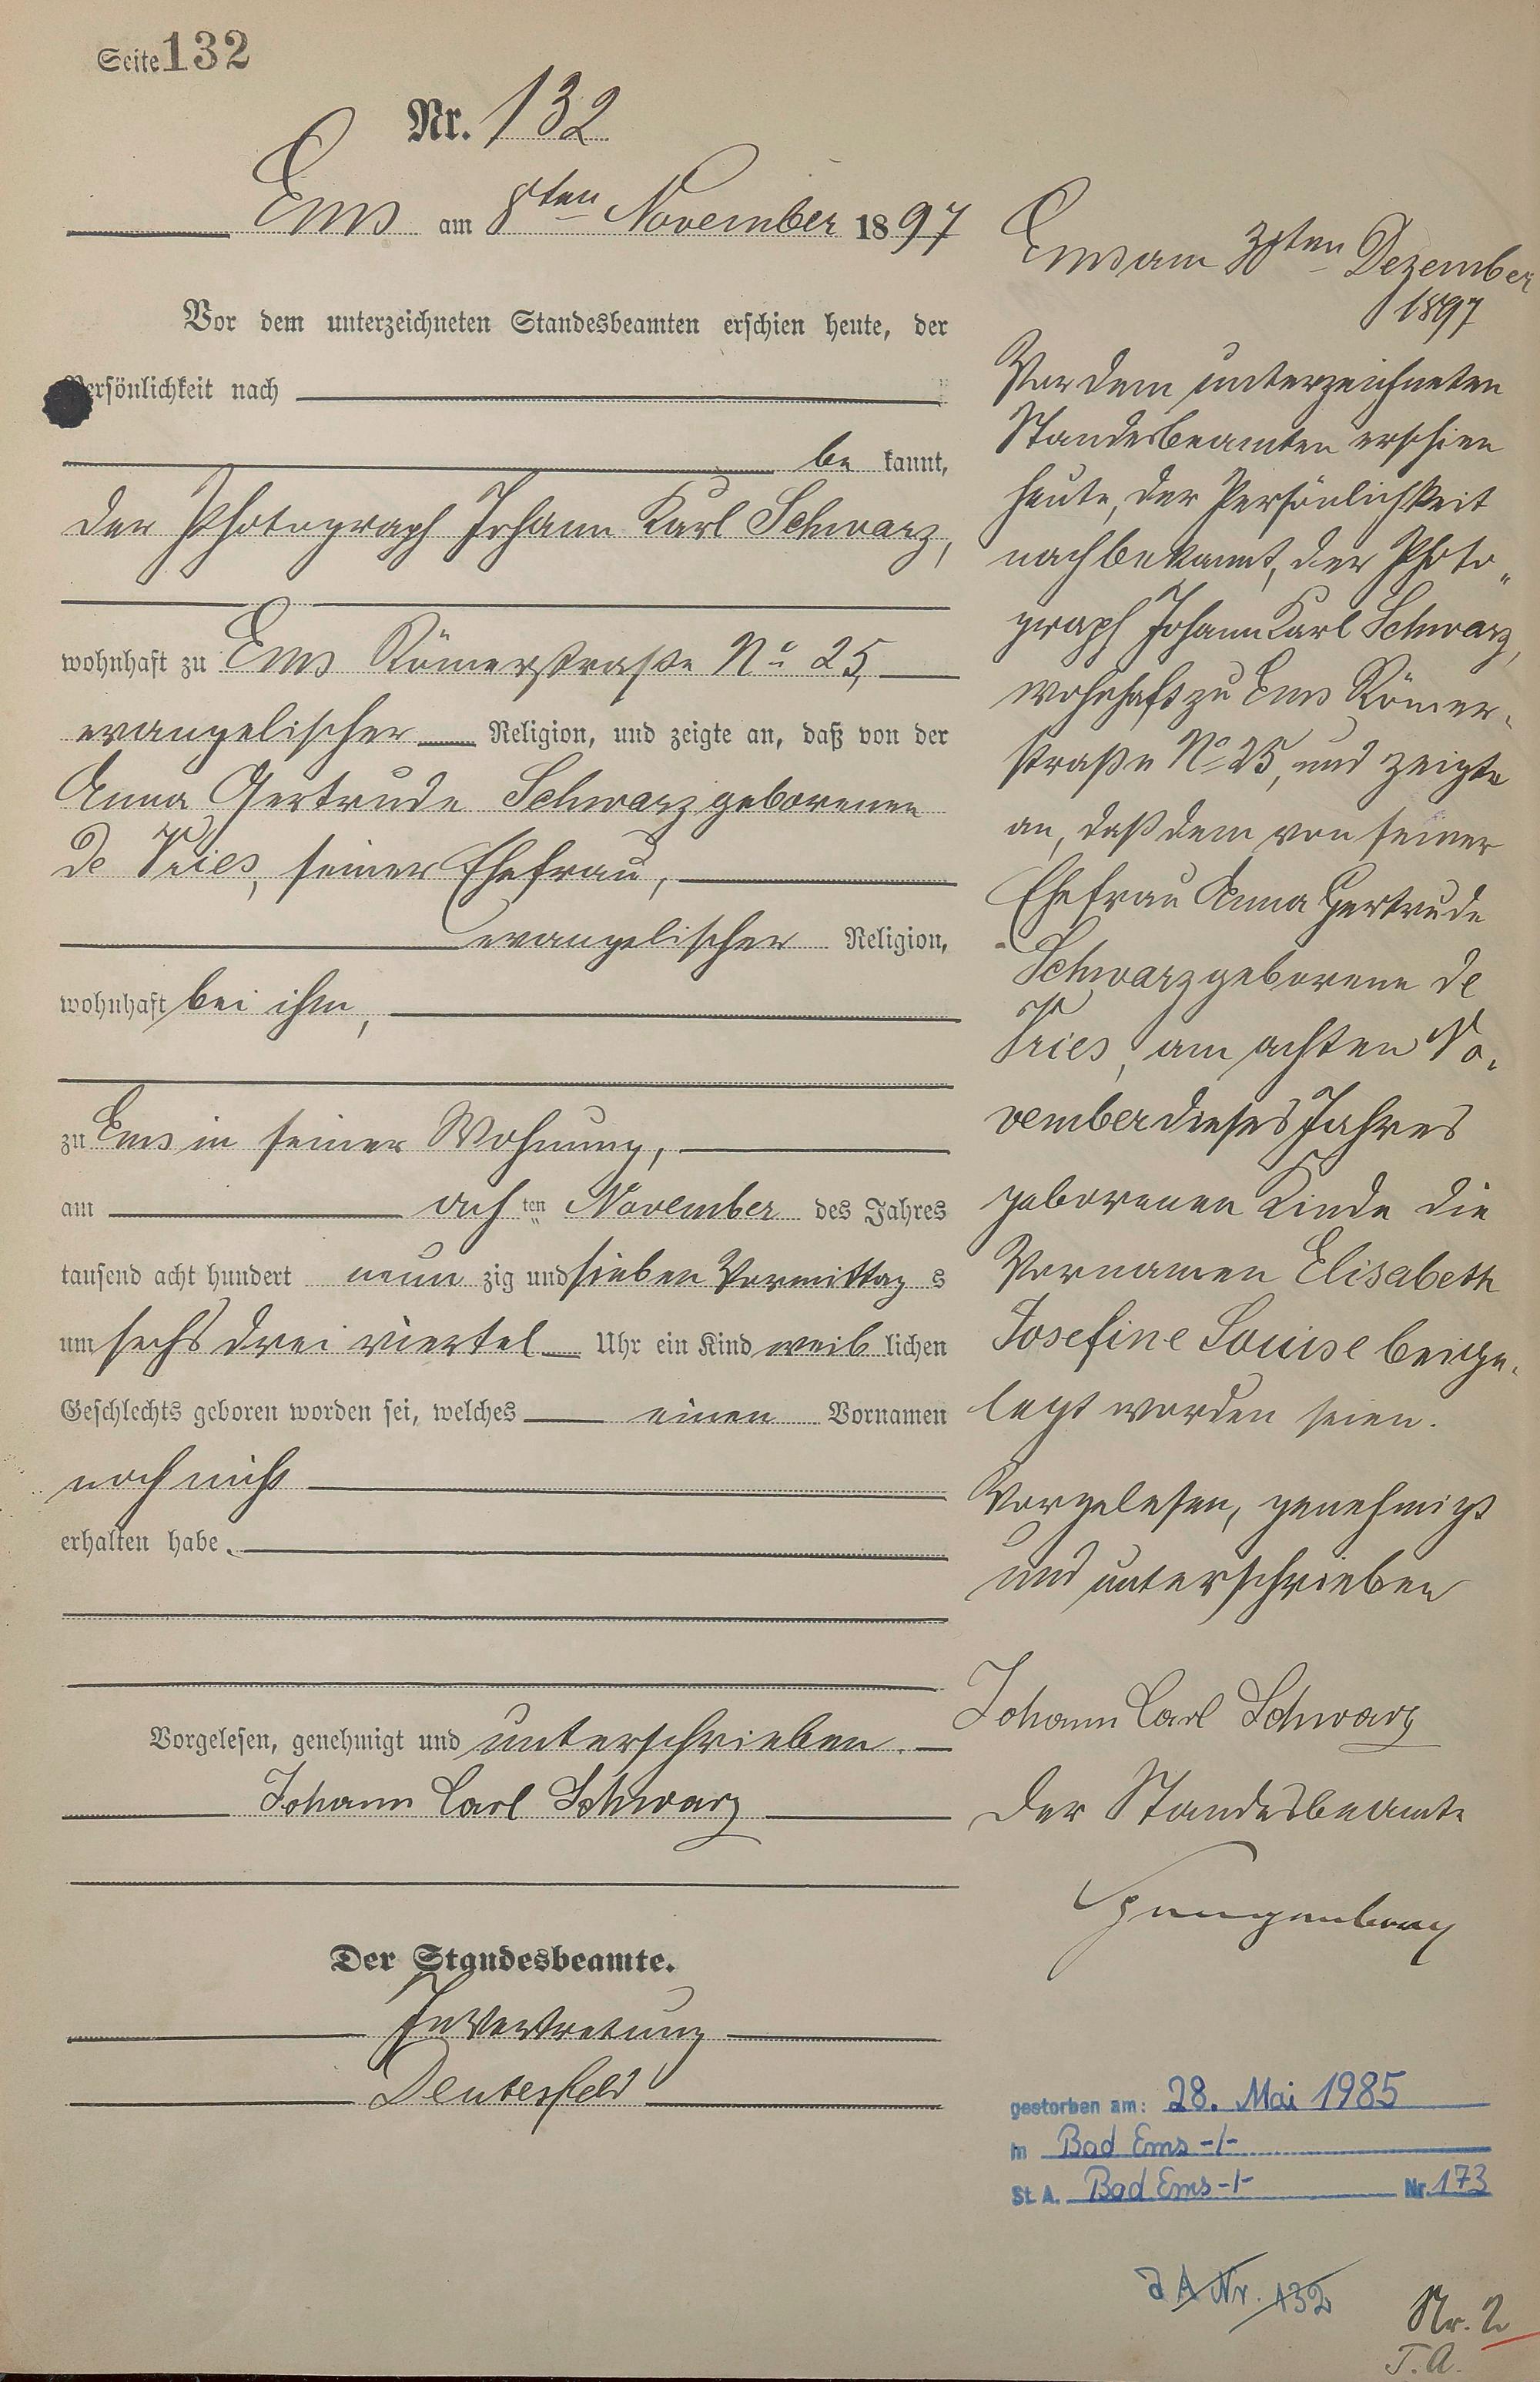 Seite 132
Nr. 132
Ems am 8ten November 1897
Vor dem unterzeichneten Standesbeamten erschien heute, der
Persönlichkeit nach
be kannt,
der Photograph Johann Karl Schwarz,
wohnhaft zu Ems Römerstraße No 25,
evangelischer Religion, und zeigte an, daß von der
Anna Gertrude Schwarz geborenen
de Vries, seiner Ehefrau,
evangelischer Religion,
wohnhaft bei ihm,
zu Ems in seiner Wohnung,
am achten November des Jahres
tausend acht hundert neun zig und sieben Vormittag s
um sechs drei viertel Uhr ein Kind weib lichen
Geschlechts geboren worden sei, welches einen Vornamen
noch nicht
erhalten habe.
Vorgelesen, genehmigt und unterschrieben.
Johann Carl Schwarz
Der Standesbeamte.
In Vertretung
Deutesfeld
Ems am Dezember
1897
Vor dem unterzeichneten
Standesbeamten erschien
heute, der Persönlichkeit
nach bekannt, der Photo„
graph Johann Karl Schwarz,
wohnhaft zu Ems Römer„
straße No 25, und zeigte
an, daß dem von seiner
Ehefrau Anna Gertrude
Schwarz geborene de
Vries, am achten No„
vember dieses Jahres
geborenen Kinde die
Vornamen Elisabeth
Josefine Louise beige„
legt worden seien.
Vorgelesen, genehmigt
und unterschrieben
Johann Carl Schwarz
Der Standesbeamte
Spangenberg
gestorben am: 28. Mai 1985
in Bad Ems -/-
St. A. Bad Ems -/- Nr. 173
A Nr. 132
Nr. 2
T. A.